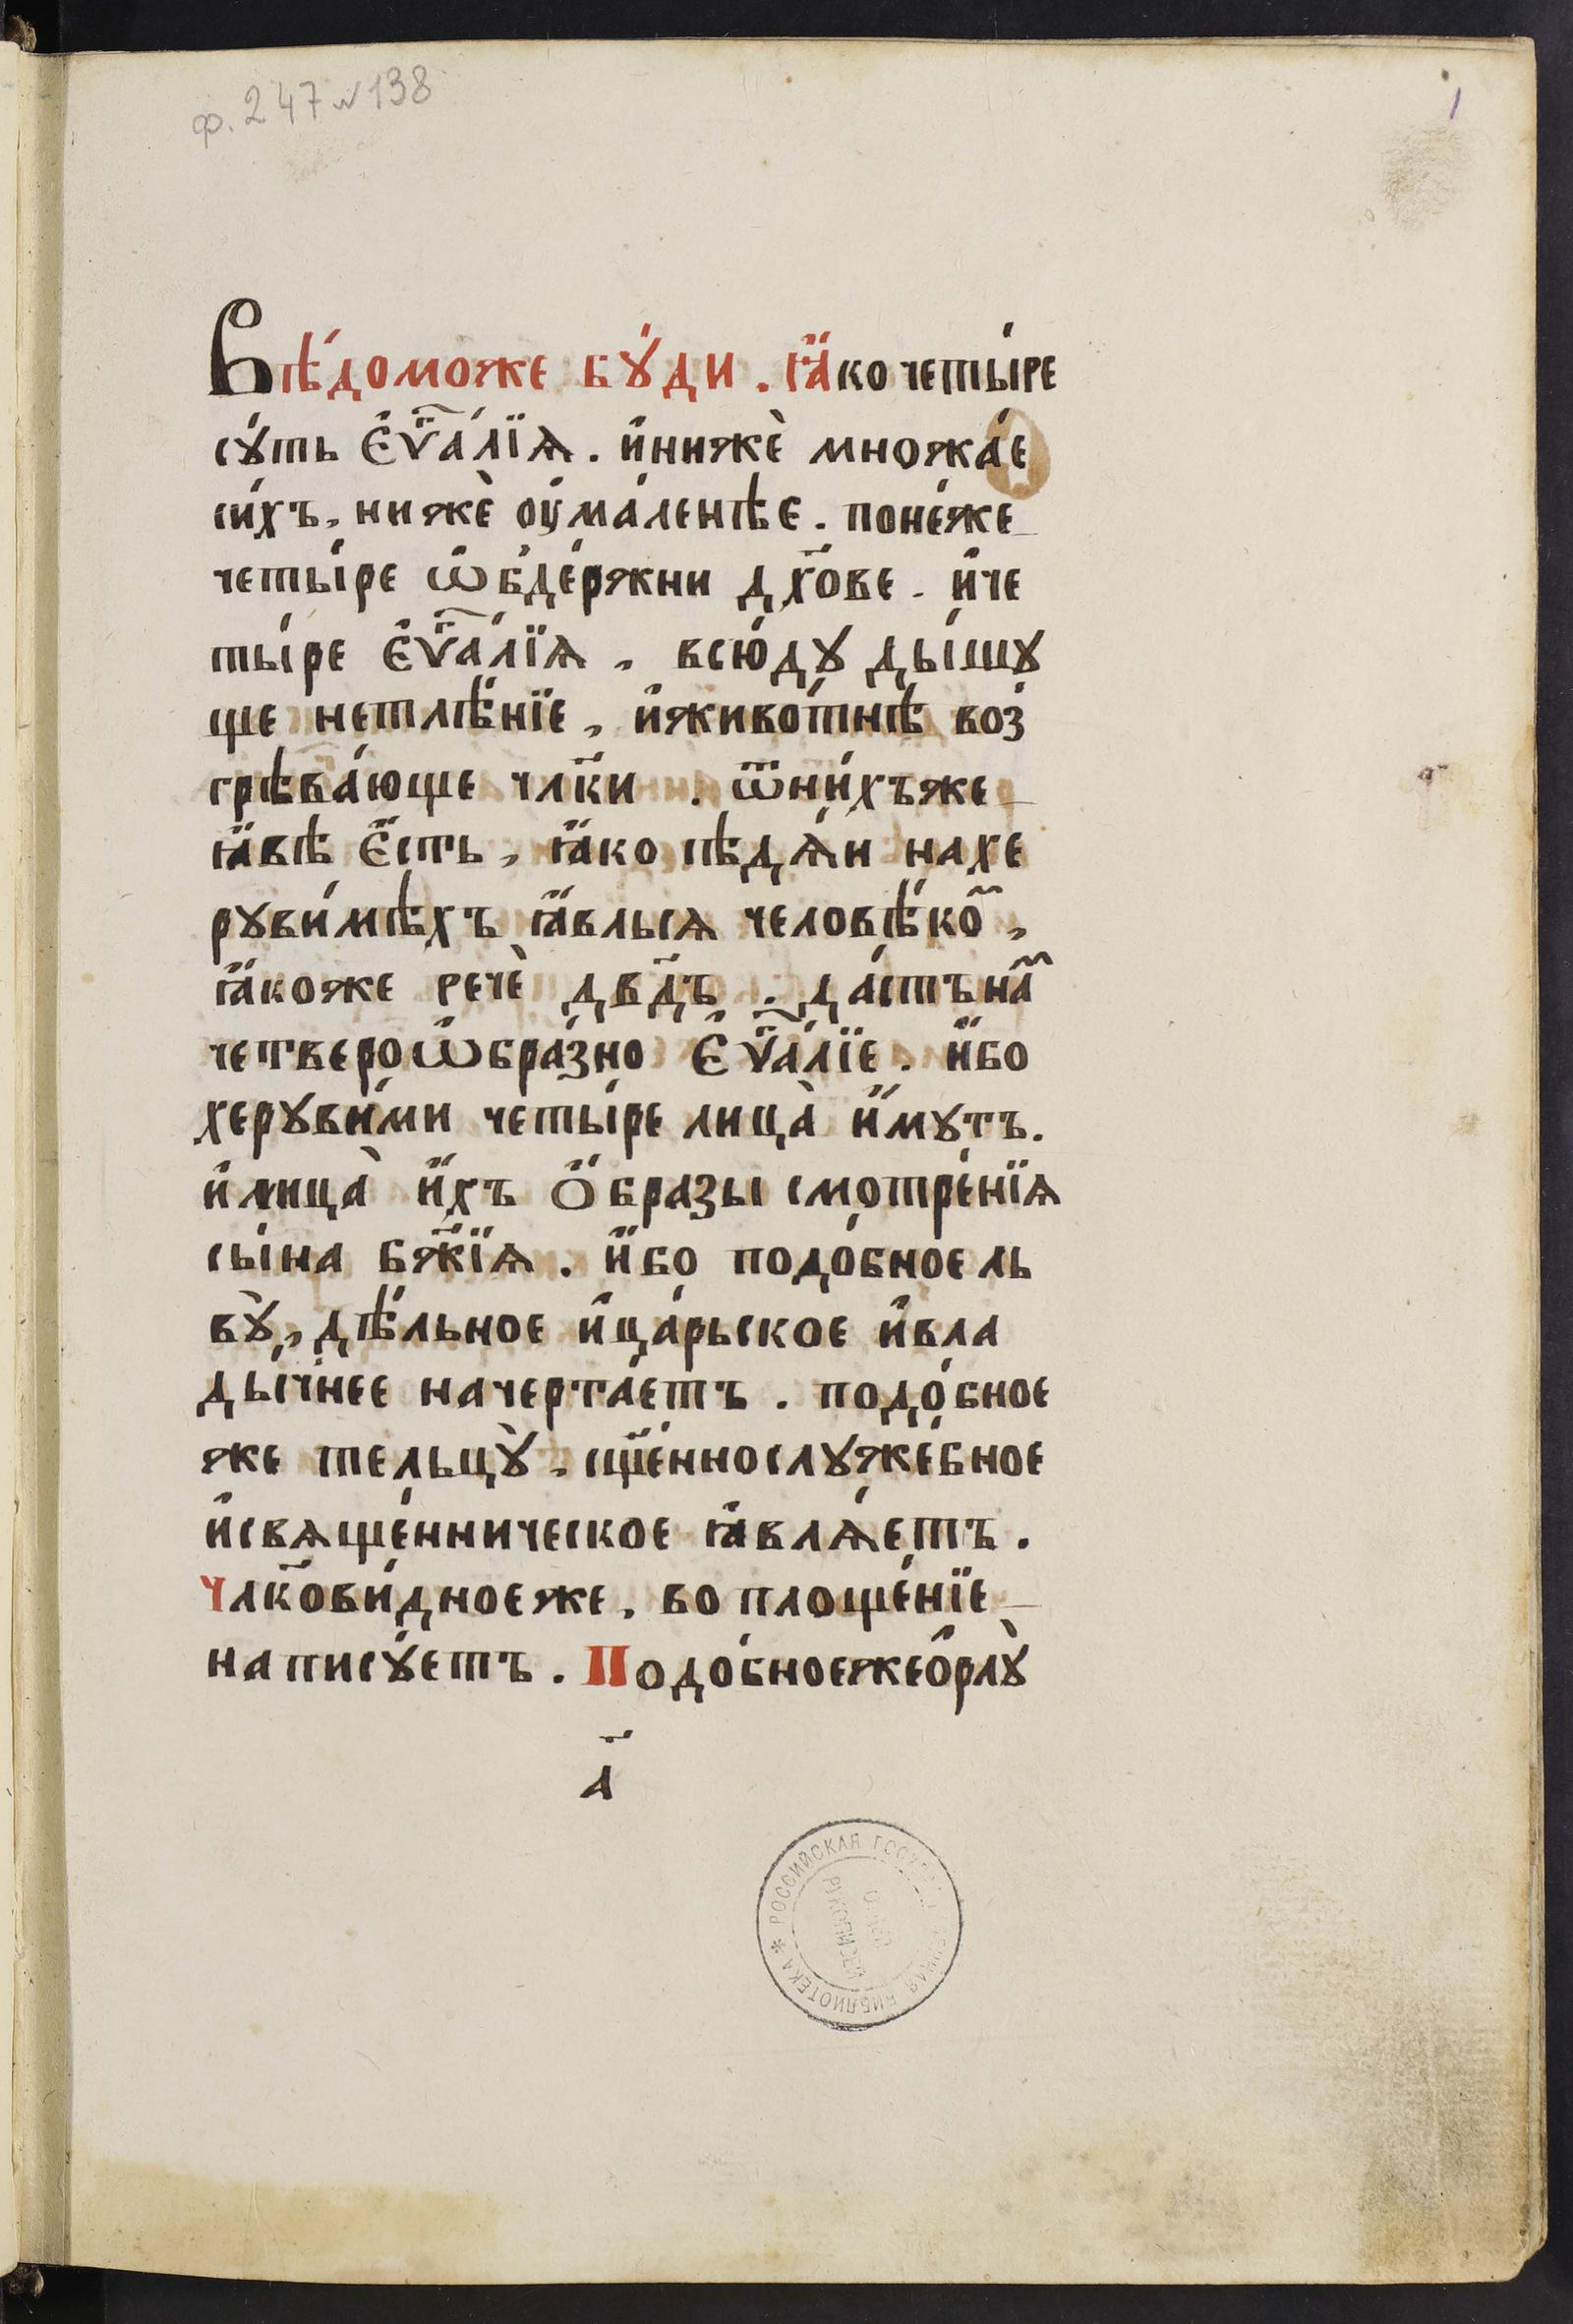 ф. 247 № 138
1
Вѣ́доможе бꙋ́ди . ꙗ҆́ко четы́ре
сꙋ́ть є҆ѵⷢ҇а́лїѧ . и҆нижѐ множа́е
си́хъ , нижѐ оу҆ма́ленѣе . поне́же
четы́ре ѡ҆бде́ржни дх҃ове . и҆че
ты́ре є҆ѵⷢ҇а́лїѧ , всю́дꙋ ды́шꙋ
ще нетлѣ́нїе , и҆живо́тнѣ воз
грѣва́юще чл҃ки . ѿни́хъже
ꙗ҆́вѣ є҆́сть , ꙗ҆́ко сѣдѧ́и нахе
рꙋви́мѣхъ ꙗ҆́вльсѧ человѣ́коⷨ ,
ꙗ҆́коже речѐ дв҃дъ . да́стъ наⷨ
четвероѡ҆бра́зно є҆ѵⷢ҇а́лїе . и҆́бо
херꙋви́ми четы́ре лица̀ и҆́мꙋтъ .
и҆лица̀ и҆́хъ ѻ҆́бразы смотре́нїѧ
сы́на бж҃їѧ . и҆́бо подо́бноель
вꙋ̀ , дѣ́льное и҆ца́рьское и҆вла
ды́чнее начерта́етъ . подо́бное
же тельцꙋ̀ , сщ҃е́ннослꙋже́бное
и҆свѧще́нническое ꙗ҆влѧ́етъ .
Чл҃кови́дноеже , во площе́нїе
написꙋ́етъ . Подо́бноежео҆рлꙋ̀
а҃
РОССИЙСКАЯ ГОСУДАРСТВЕННАЯ БИБЛИОТЕКА *
ОТДЕЛ
РУКОПИСЕЙ